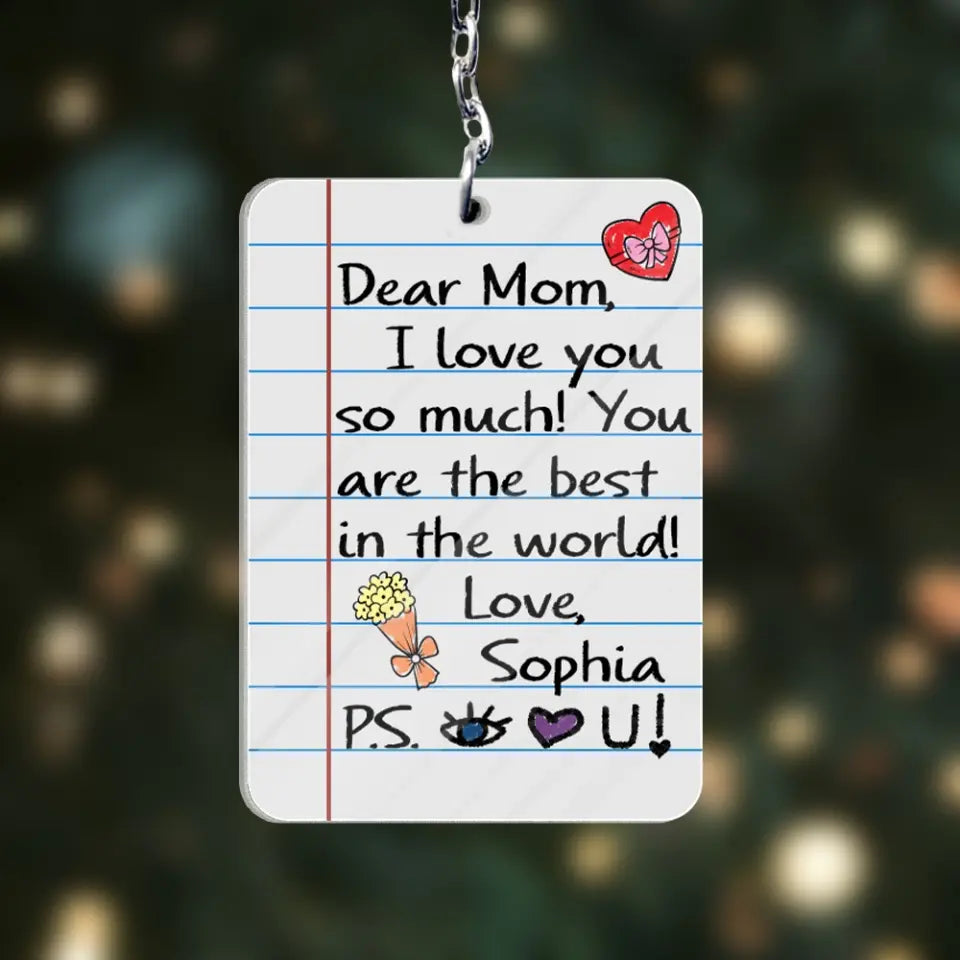 Dear Mom,
I love you
so much! You
are the best
in the world!
Love,
Sophia
P.S. 👁 💜 U!